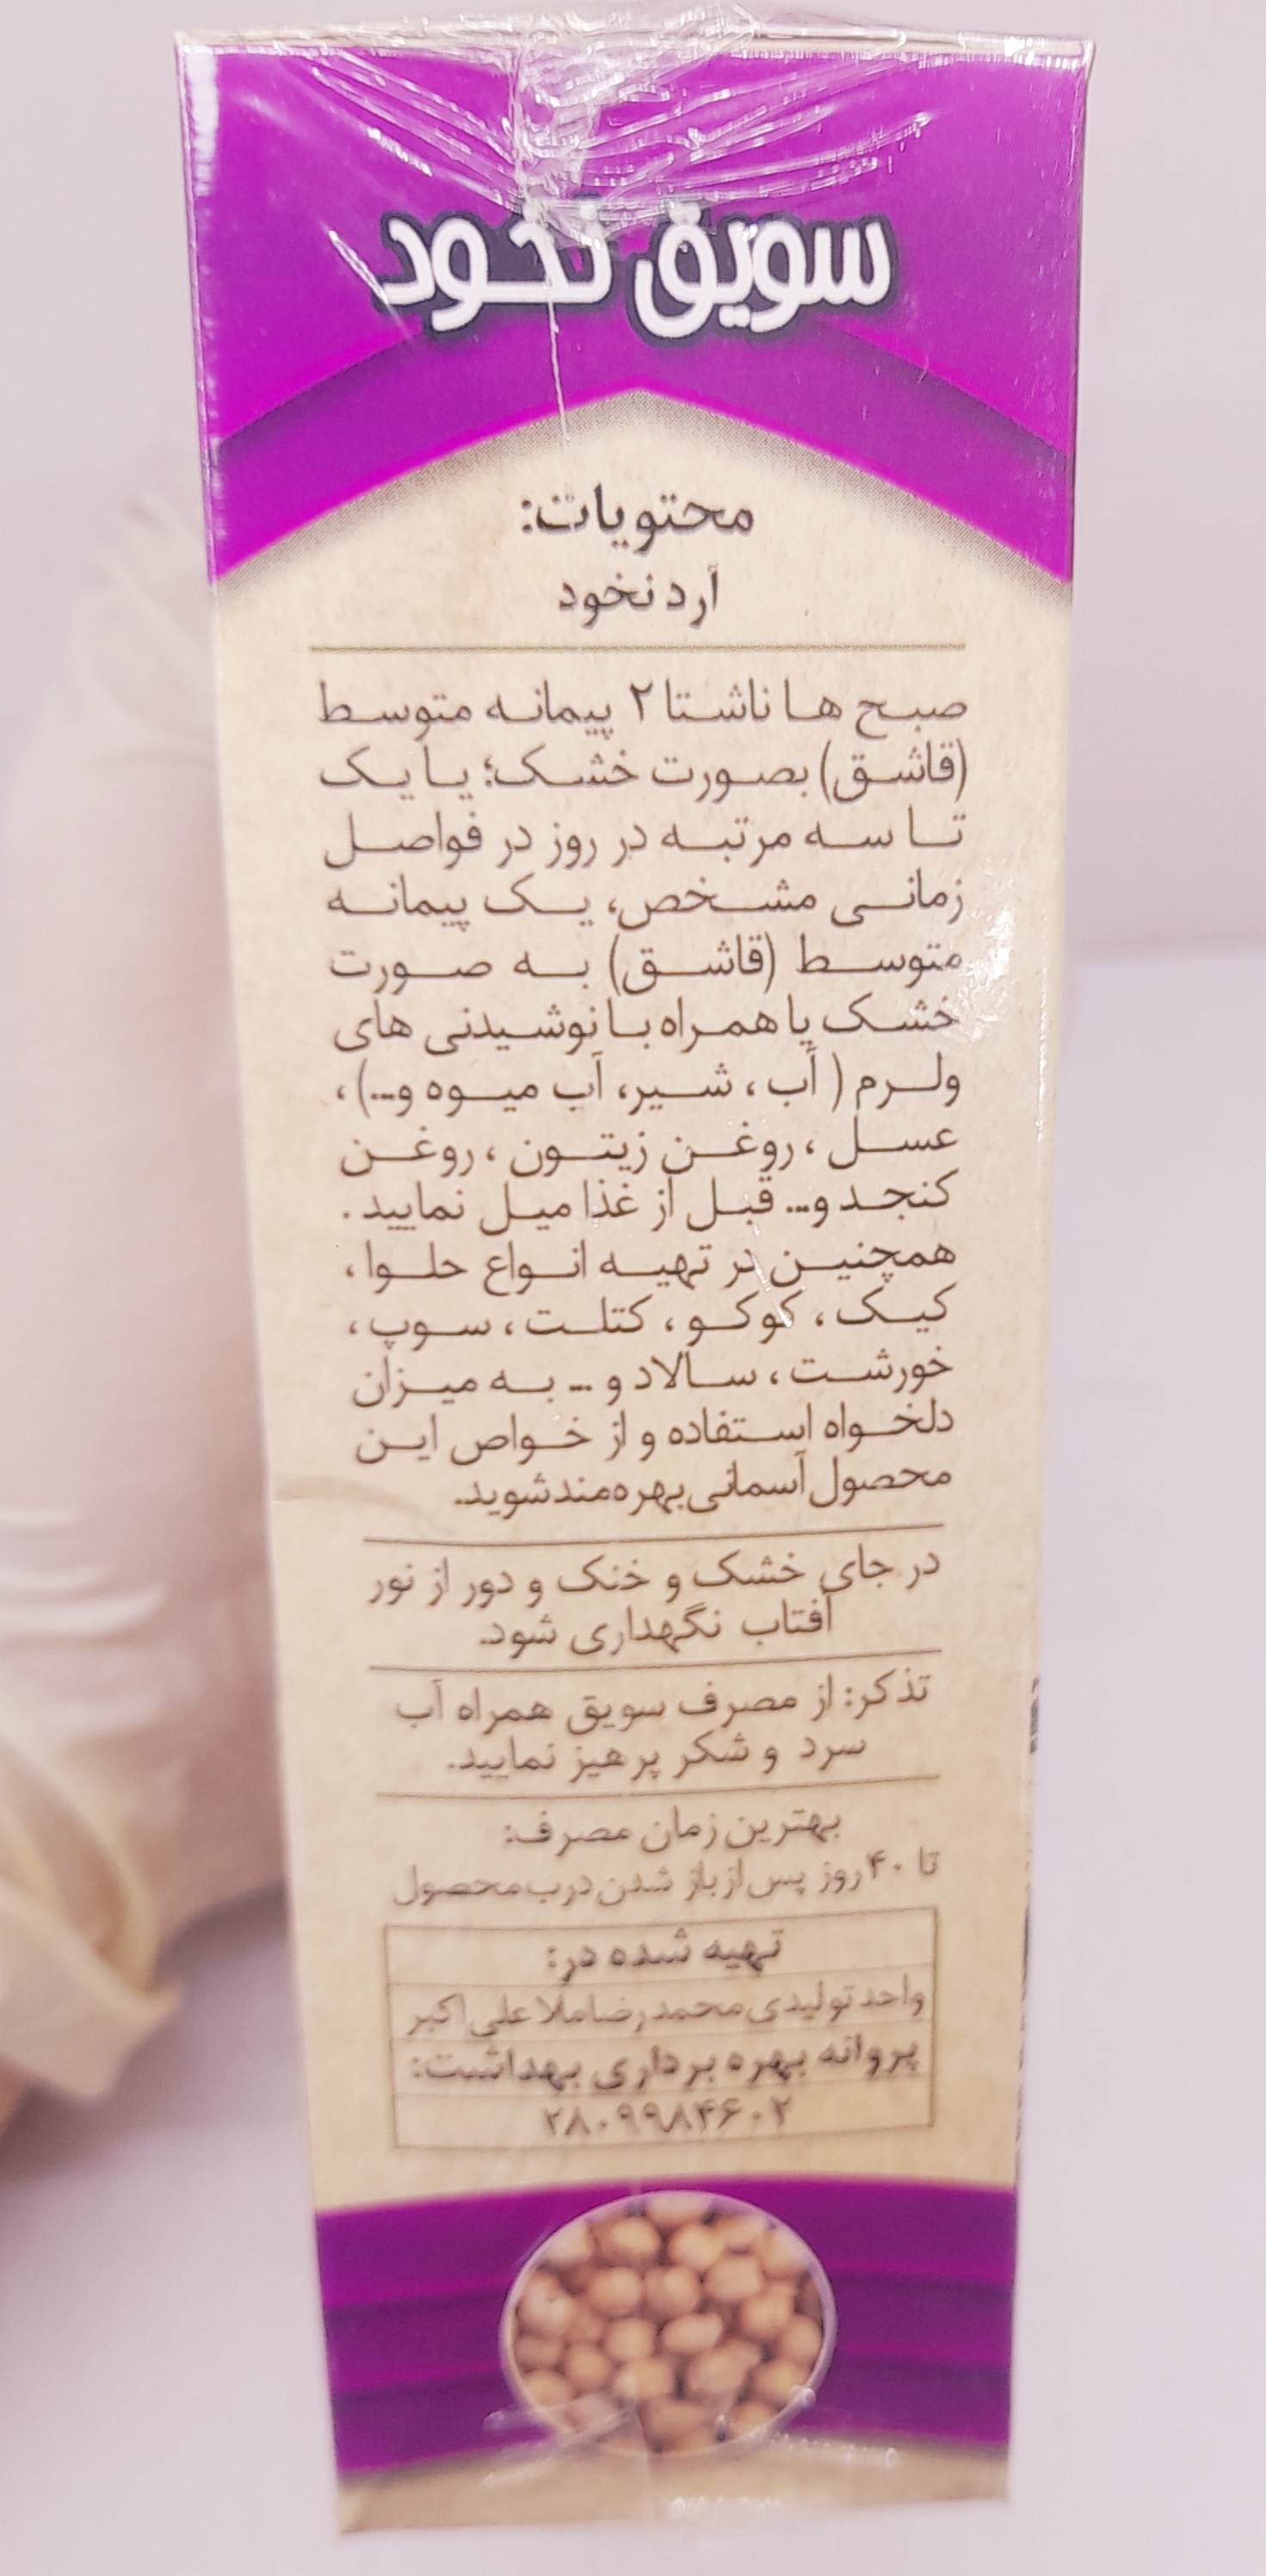 سویق نخود
محتویات:
آرد نخود
صبح ها ناشتا ۲ پیمانه متوسط
(قاشق) بصورت خشک؛ یا یک
تا سه مرتبه در روز در فواصل
زمانی مشخص، یک پیمانه
متوسط (قاشق) به صورت
خشک یا همراه با نوشیدنی های
ولرم ( آب ، شیر، آب میوه و...) ،
عسل ، روغن زیتون ، روغن
کنجد و... قبل از غذا میل نمایید .
همچنین در تهیه انواع حلوا ،
کیک ، کوکو ، کتلت ، سوپ ،
خورشت ، سالاد و ... به میزان
دلخواه استفاده و از خواص این
محصول آسمانی بهره مند شوید.
در جای خشک و خنک و دور از نور
آفتاب نگهداری شود.
تذکر: از مصرف سویق همراه آب
سرد و شکر پرهیز نمایید.
بهترین زمان مصرف:
تا ۴۰ روز پس از باز شدن درب محصول
تهیه شده در:
واحد تولیدی محمدرضا ملا علی اکبر
پروانه بهره برداری بهداشت:
۲۸۰۹۹۸۴۶۰۲